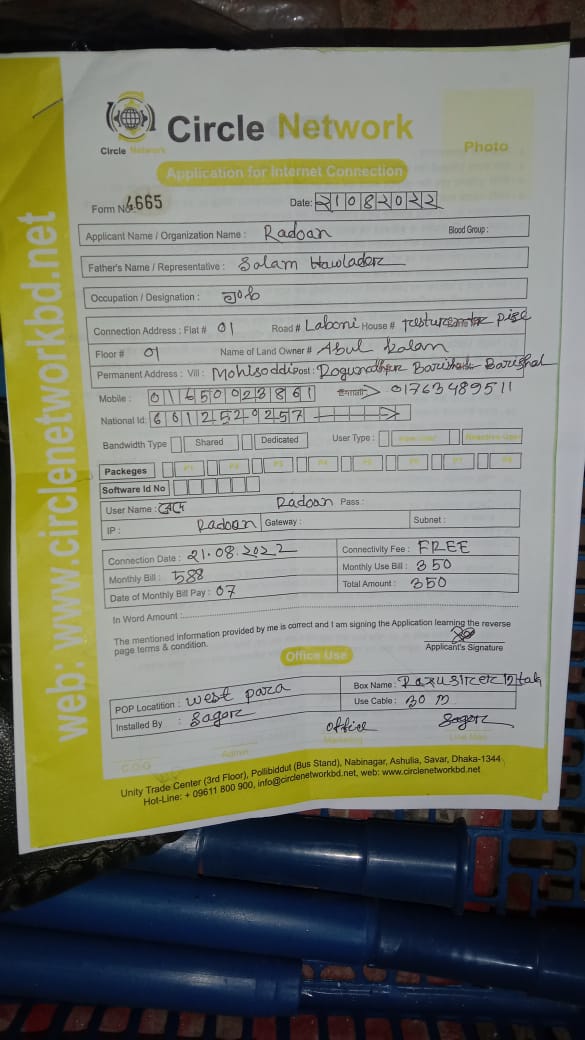 Circle Network
Circle Network
Photo
Application for Internet Connection
web: www.circlenetworkbd.net
Form No 4665
Date: 21082022
Applicant Name / Organization Name : Radoan
Blood Group :
Father's Name / Representative : Salam Hawlader
Occupation / Designation :
Connection Address : Flat # 01 Road # Laboni House #
Floor # 01 Name of Land Owner # Abul kalam
Permanent Address : Vill : Post : Barishal
Mobile : 01763489511
National Id:
Bandwidth Type Shared Dedicated User Type :
Packeges P1 P2 P3 P4 P5 P6 P7 P8
Software Id No
User Name : Radoan Pass :
IP : Radoan Gateway : Subnet :
Connection Date : 21.08.2022
Connectivity Fee : FREE
Monthly Bill : 588
Monthly Use Bill : 350
Date of Monthly Bill Pay : 07
Total Amount : 350
In Word Amount :
The mentioned information provided by me is correct and I am signing the Application learning the reverse
page terms & condition.
Applicant's Signature
Office Use
POP Locatition : west para
Box Name :
Installed By : Sagor
Use Cable : 30 m
office Sagor
C.O.O Admin Marketing Line Man
Unity Trade Center (3rd Floor), Pollibiddut (Bus Stand), Nabinagar, Ashulia, Savar, Dhaka-1344
Hot-Line: + 09611 800 900, info@circlenetworkbd.net, web: www.circlenetworkbd.net